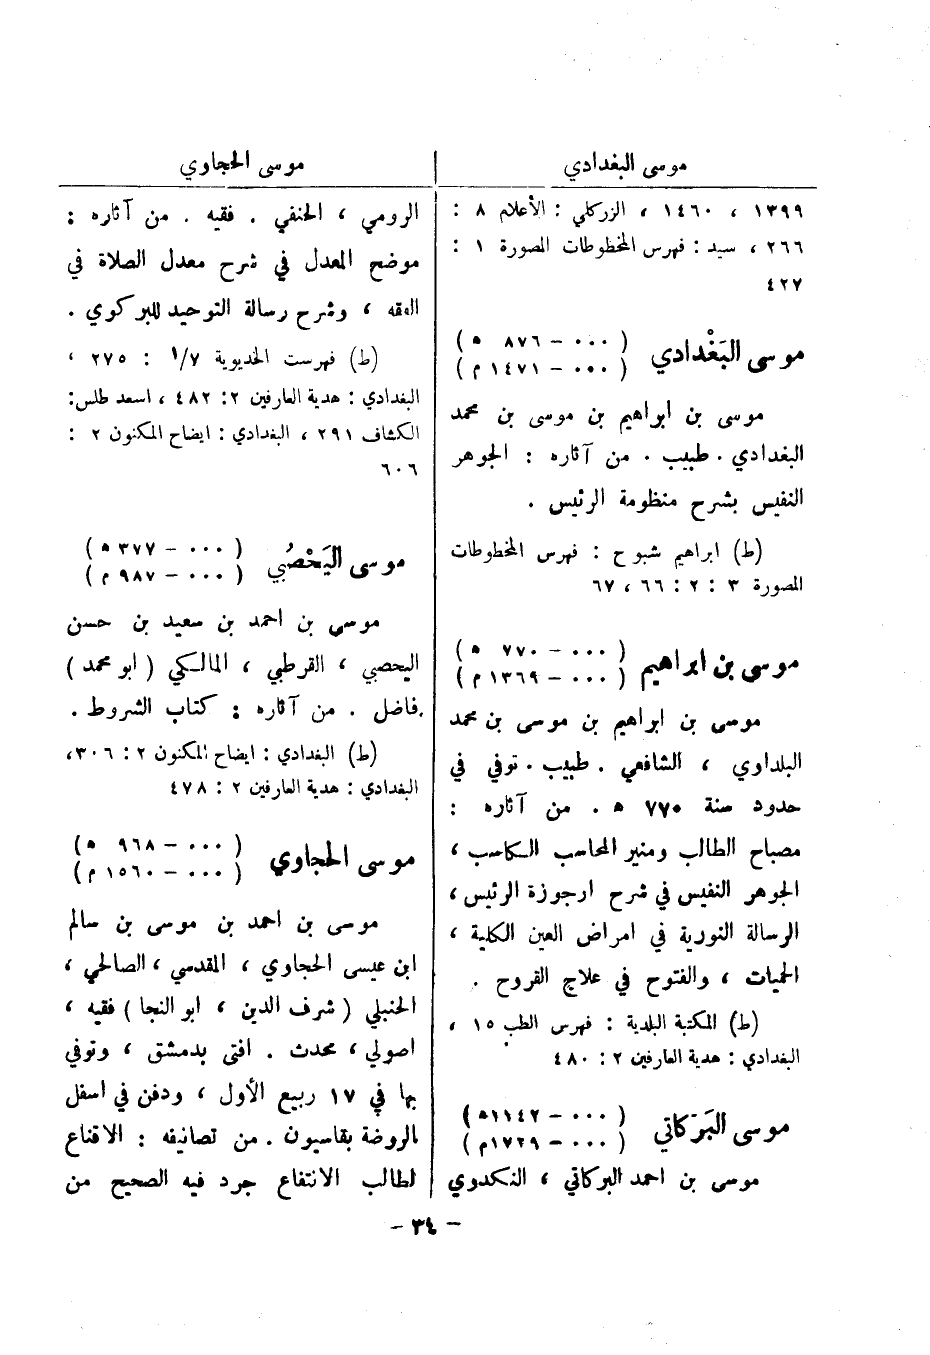 موسى البغدادي
١٣٩٩ ، ١٤٦٠ ، الزركلي : الأعلام ٨ :
٢٦٦ ، سيد : فهرس المخطوطات المصورة ١ :
٤٢٧
موسى البَغْدادي ( ٠٠٠ - ٨٧٦ ه )
( ٠٠٠ - ١٤٧١ م )
موسى بن ابراهيم بن موسى بن محمد
البغدادي . طبيب . من آثاره : الجوهر
النفيس بشرح منظومة الرئيس .
(ط) ابراهيم شبوح : فهرس المخطوطات
المصورة ٣ : ٢ : ٦٦ ، ٦٧
موسى بن ابراهيم ( ٠٠٠ - ٧٧٠ ه )
( ٠٠٠ - ١٣٦٩ م )
موسى بن ابراهيم بن موسى بن محمد
البلداوي ، الشافعي . طبيب . توفي في
حدود سنة ٧٧٠ ه . من آثاره :
مصباح الطالب ومنير المحاسب الكاسب ،
الجوهر النفيس في شرح ارجوزة الرئيس ،
الرسالة النورية في امراض العين الكلية ،
الحميات ، والفتوح في علاج القروح .
(ط) المكتبة البلدية : فهرس الطب ١٥ ،
البغدادي : هدية العارفين ٢ : ٤٨٠
موسى البَرَكاتي ( ٠٠٠ - ١١٤٢ ه )
( ٠٠٠ - ١٧٢٩ م )
موسى بن احمد البركاتي ، النكدوي
موسى الحجاوي
الرومي ، الحنفي . فقيه . من آثاره :
موضح المعدل في شرح معدل الصلاة في
الفقه ، وشرح رسالة التوحيد للبركوي .
(ط) فهرست الخديوية ١/٧ : ٢٧٥ ،
البغدادي : هدية العارفين ٢ : ٤٨٢ ، اسعد طلس :
الكشاف ٢٩١ ، البغدادي : ايضاح المكنون ٢ :
٦٠٦
موسى اليَحْصُبي ( ٠٠٠ - ٣٧٧ ه )
( ٠٠٠ - ٩٨٧ م )
موسى بن احمد بن سعيد بن حسن
اليحصبي ، القرطبي ، المالكي ( ابو محمد )
فاضل . من آثاره : كتاب الشروط .
(ط) البغدادي : ايضاح المكنون ٢ : ٣٠٦ ،
البغدادي : هدية العارفين ٢ : ٤٧٨
موسى الحجاوي ( ٠٠٠ - ٩٦٨ ه )
( ٠٠٠ - ١٥٦٠ م )
موسى بن احمد بن موسى بن سالم
ابن عيسى الحجاوي ، المقدسي ، الصالحي ،
الحنبلي ( شرف الدين ، ابو النجا ) فقيه ،
اصولي ، محدث . افتى بدمشق ، وتوفي
بها في ١٧ ربيع الأول ، ودفن في اسفل
الروضة بقاسيون . من تصانيفه : الاقناع
لطالب الانتفاع جرد فيه الصحيح من
- ٣٤ -